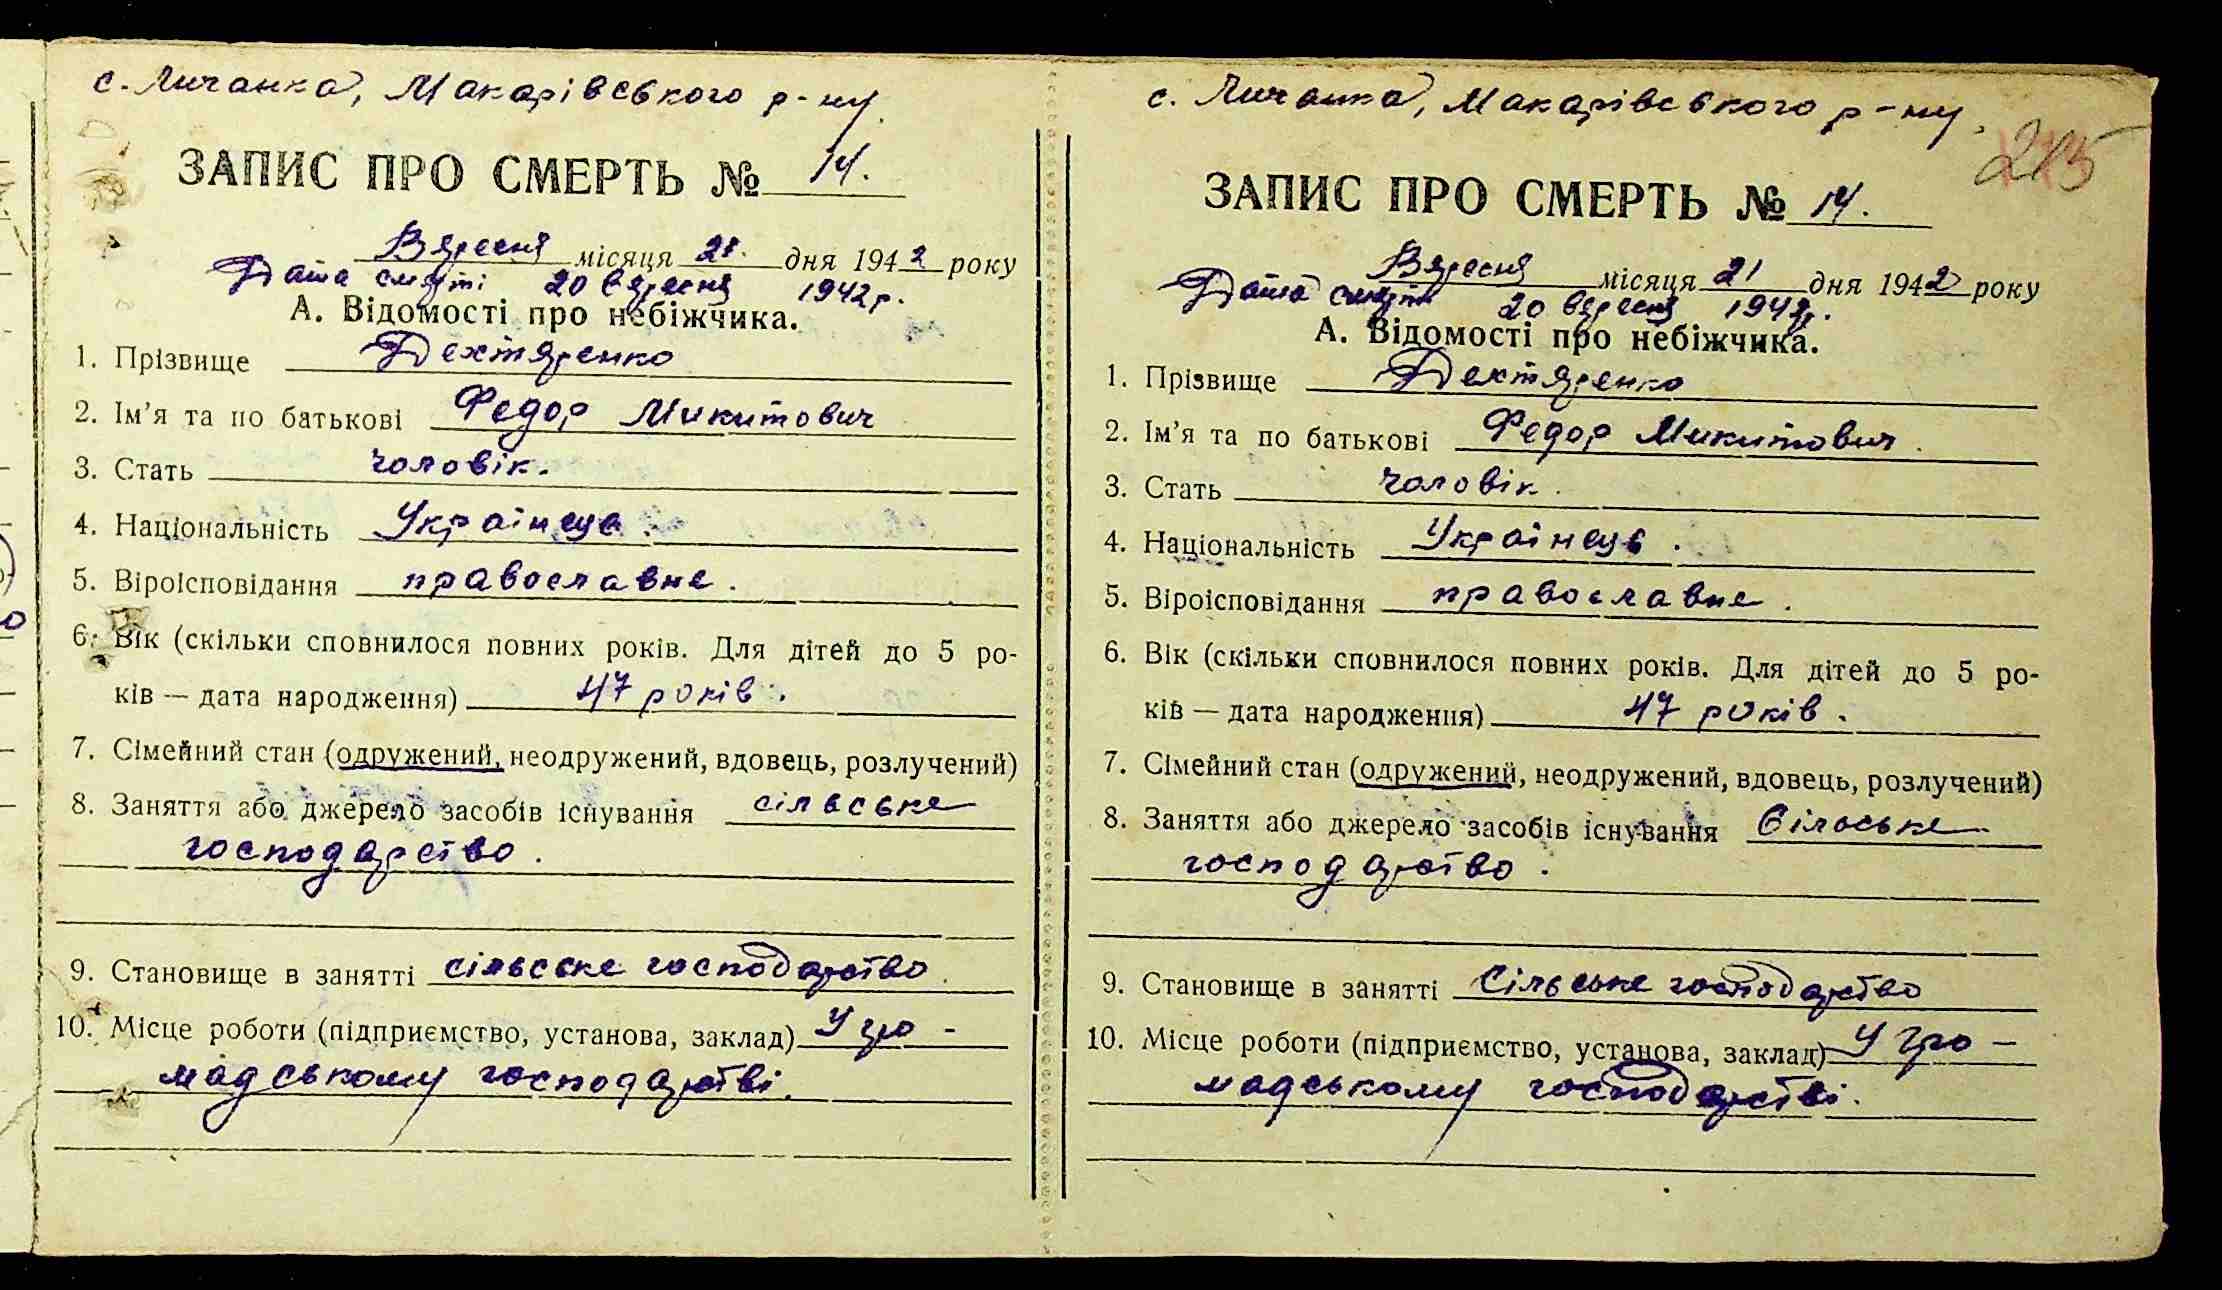 с. Личанка, Макарівського р-ну.
ЗАПИС ПРО СМЕРТЬ № 14.
Вересня місяця 21. дня 1942 року
Дата смерті 20 вересня 1942 р.
А. Відомості про небіжчика.
1. Прізвище Дехтяренко
2. Ім'я та по батькові Федор Микитович
3. Стать чоловік.
4. Національність Українець.
5. Віроісповідання православне.
6. Вік (скільки сповнилося повних років. Для дітей до 5 ро-
ків — дата народження) 47 років.
7. Сімейний стан (одружений, неодружений, вдовець, розлучений)
8. Заняття або джерело засобів існування сільське
господарство.
9. Становище в занятті сільське господарство.
10. Місце роботи (підприємство, установа, заклад) У гро-
мадському господарстві.
с. Личанка, Макарівського р-ну.
ЗАПИС ПРО СМЕРТЬ № 14.
Вересня місяця 21 дня 1942 року
Дата смерти 20 вересня 1942р.
А. Відомості про небіжчика.
1. Прізвище Дехтяренко
2. Ім'я та по батькові Федор Микитович.
3. Стать чоловік.
4. Національність Українець.
5. Віроісповідання православне.
6. Вік (скільки сповнилося повних років. Для дітей до 5 ро-
ків — дата народження) 47 років.
7. Сімейний стан (одружений, неодружений, вдовець, розлучений)
8. Заняття або джерело засобів існування Сільське
господарство.
9. Становище в занятті Сільське господарство
10. Місце роботи (підприємство, установа, заклад) У гро-
мадському господарстві.